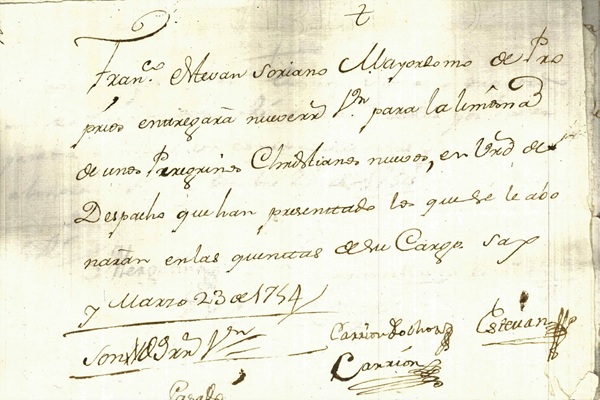 Fran.co Estevan Soriano Mayordomo de Pro
prios entregará nueve rr.s V.n para la limosna
de unos Peregrinos Christianos nuevos, en Vrd de
Despacho que han presenttado los que se le abo
naran en las quenttas de su Cargo. Sax
y Marzo 23 de 1754
Son 9 rr.s V.n
Carrion
Estevan